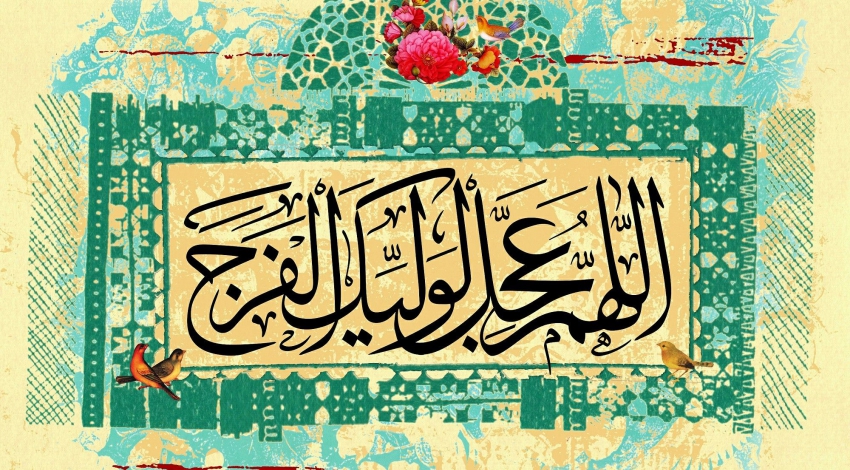 اللّٰهُمَّ عَجِّل لِوَلِیِّکَ الْفَرَجَ